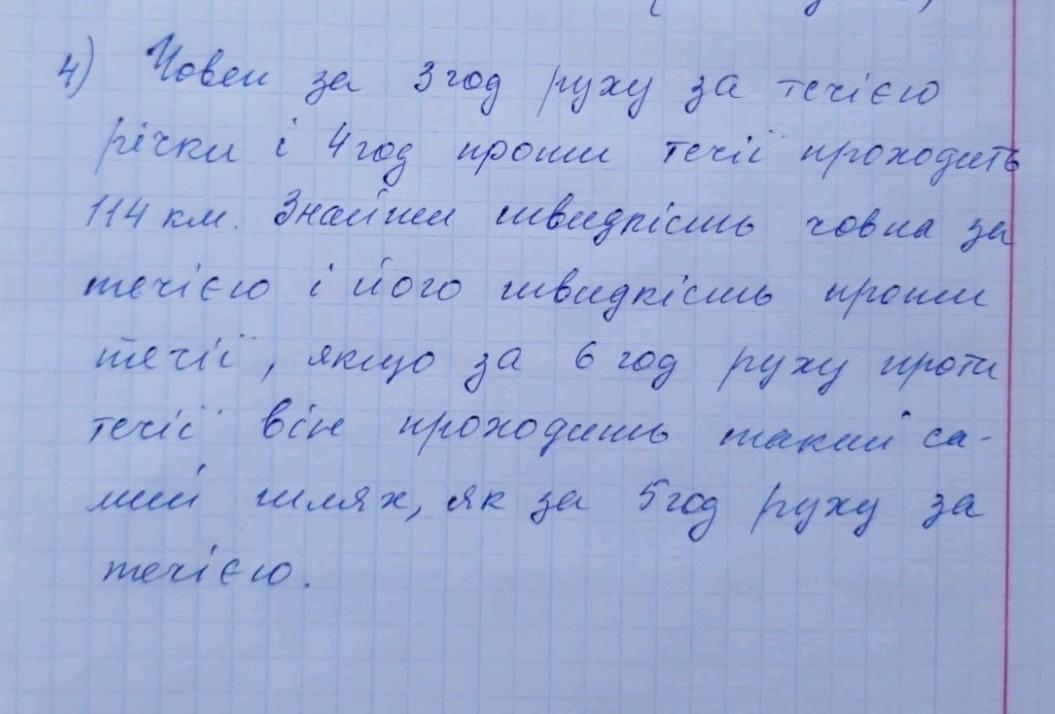 4) Човен за 3 год руху за течією
річки і 4 год проти течії проходить
114 км. Знайти швидкість човна за
течією і його швидкість проти
течії, якщо за 6 год руху проти
течії він проходить такий са-
мий шлях, як за 5 год руху за
течією.